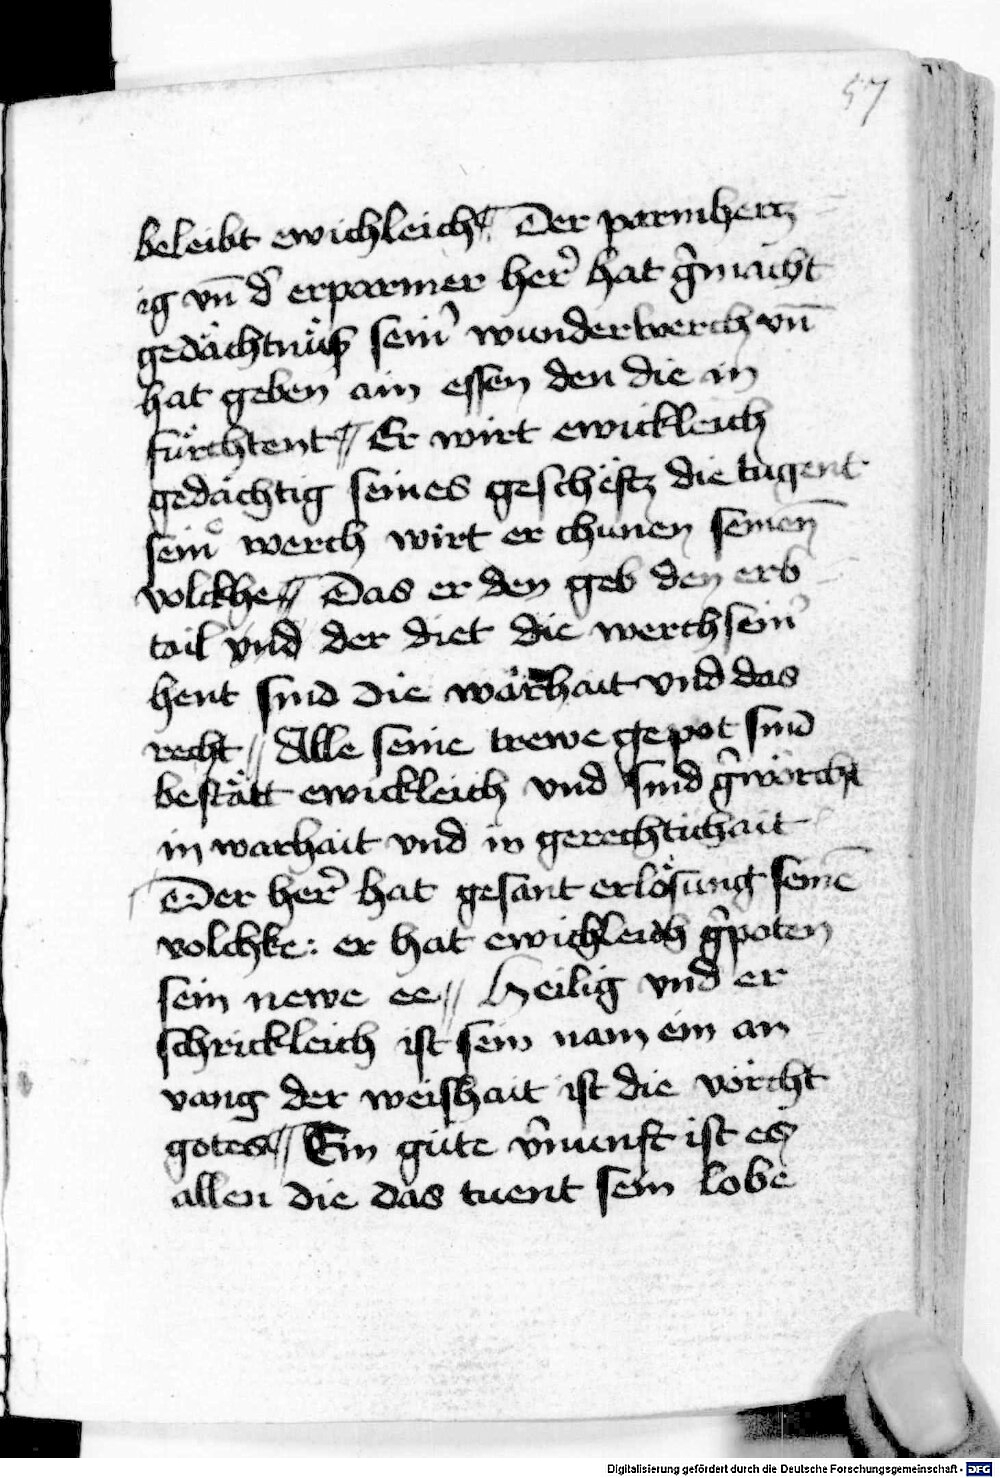 57
beleibt ewichleich Der parmhertz
ig vn̄ d̓ erparmer her̓ hat g̓mächt
gedächtnüß sein̓ wunderwerch vn̄
hat geben ain essen den die in
fürchtent Er wirt ewickleich
gedächtig seines geschёftz die tugent
sein̓ werch wirt er chunen seinen̄
volckhe Das er den geb den erb
tail vnd der diet die werch sein̓
hent sind die warhait vnd das
recht Alle seine trewe gepot sind
bestätt ewickleich vnd sind g̓wörcht
in warhait vnd in gerechtichait
Der her̓ hat gesant erlösung seinē
volchke: er hat ewichleich g̓poten
sein newe ee Heilig vnd er
schrickleich ist sein nam ein an
vang der weishait ist die vörcht
gotes Ein güte v̓nunft ist es
allen die das tuent sein lobe
Digitalisierung gefördert durch die Deutsche Forschungsgemeinschaft - DFG